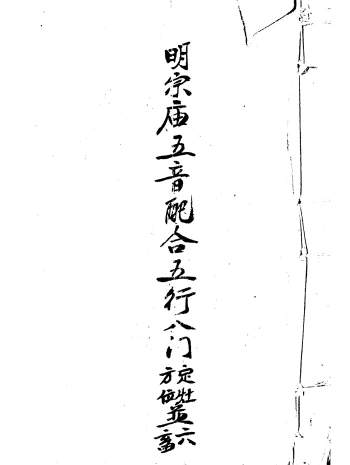 明宗庙五音配合五行八门
定灶
方位
並六
畜